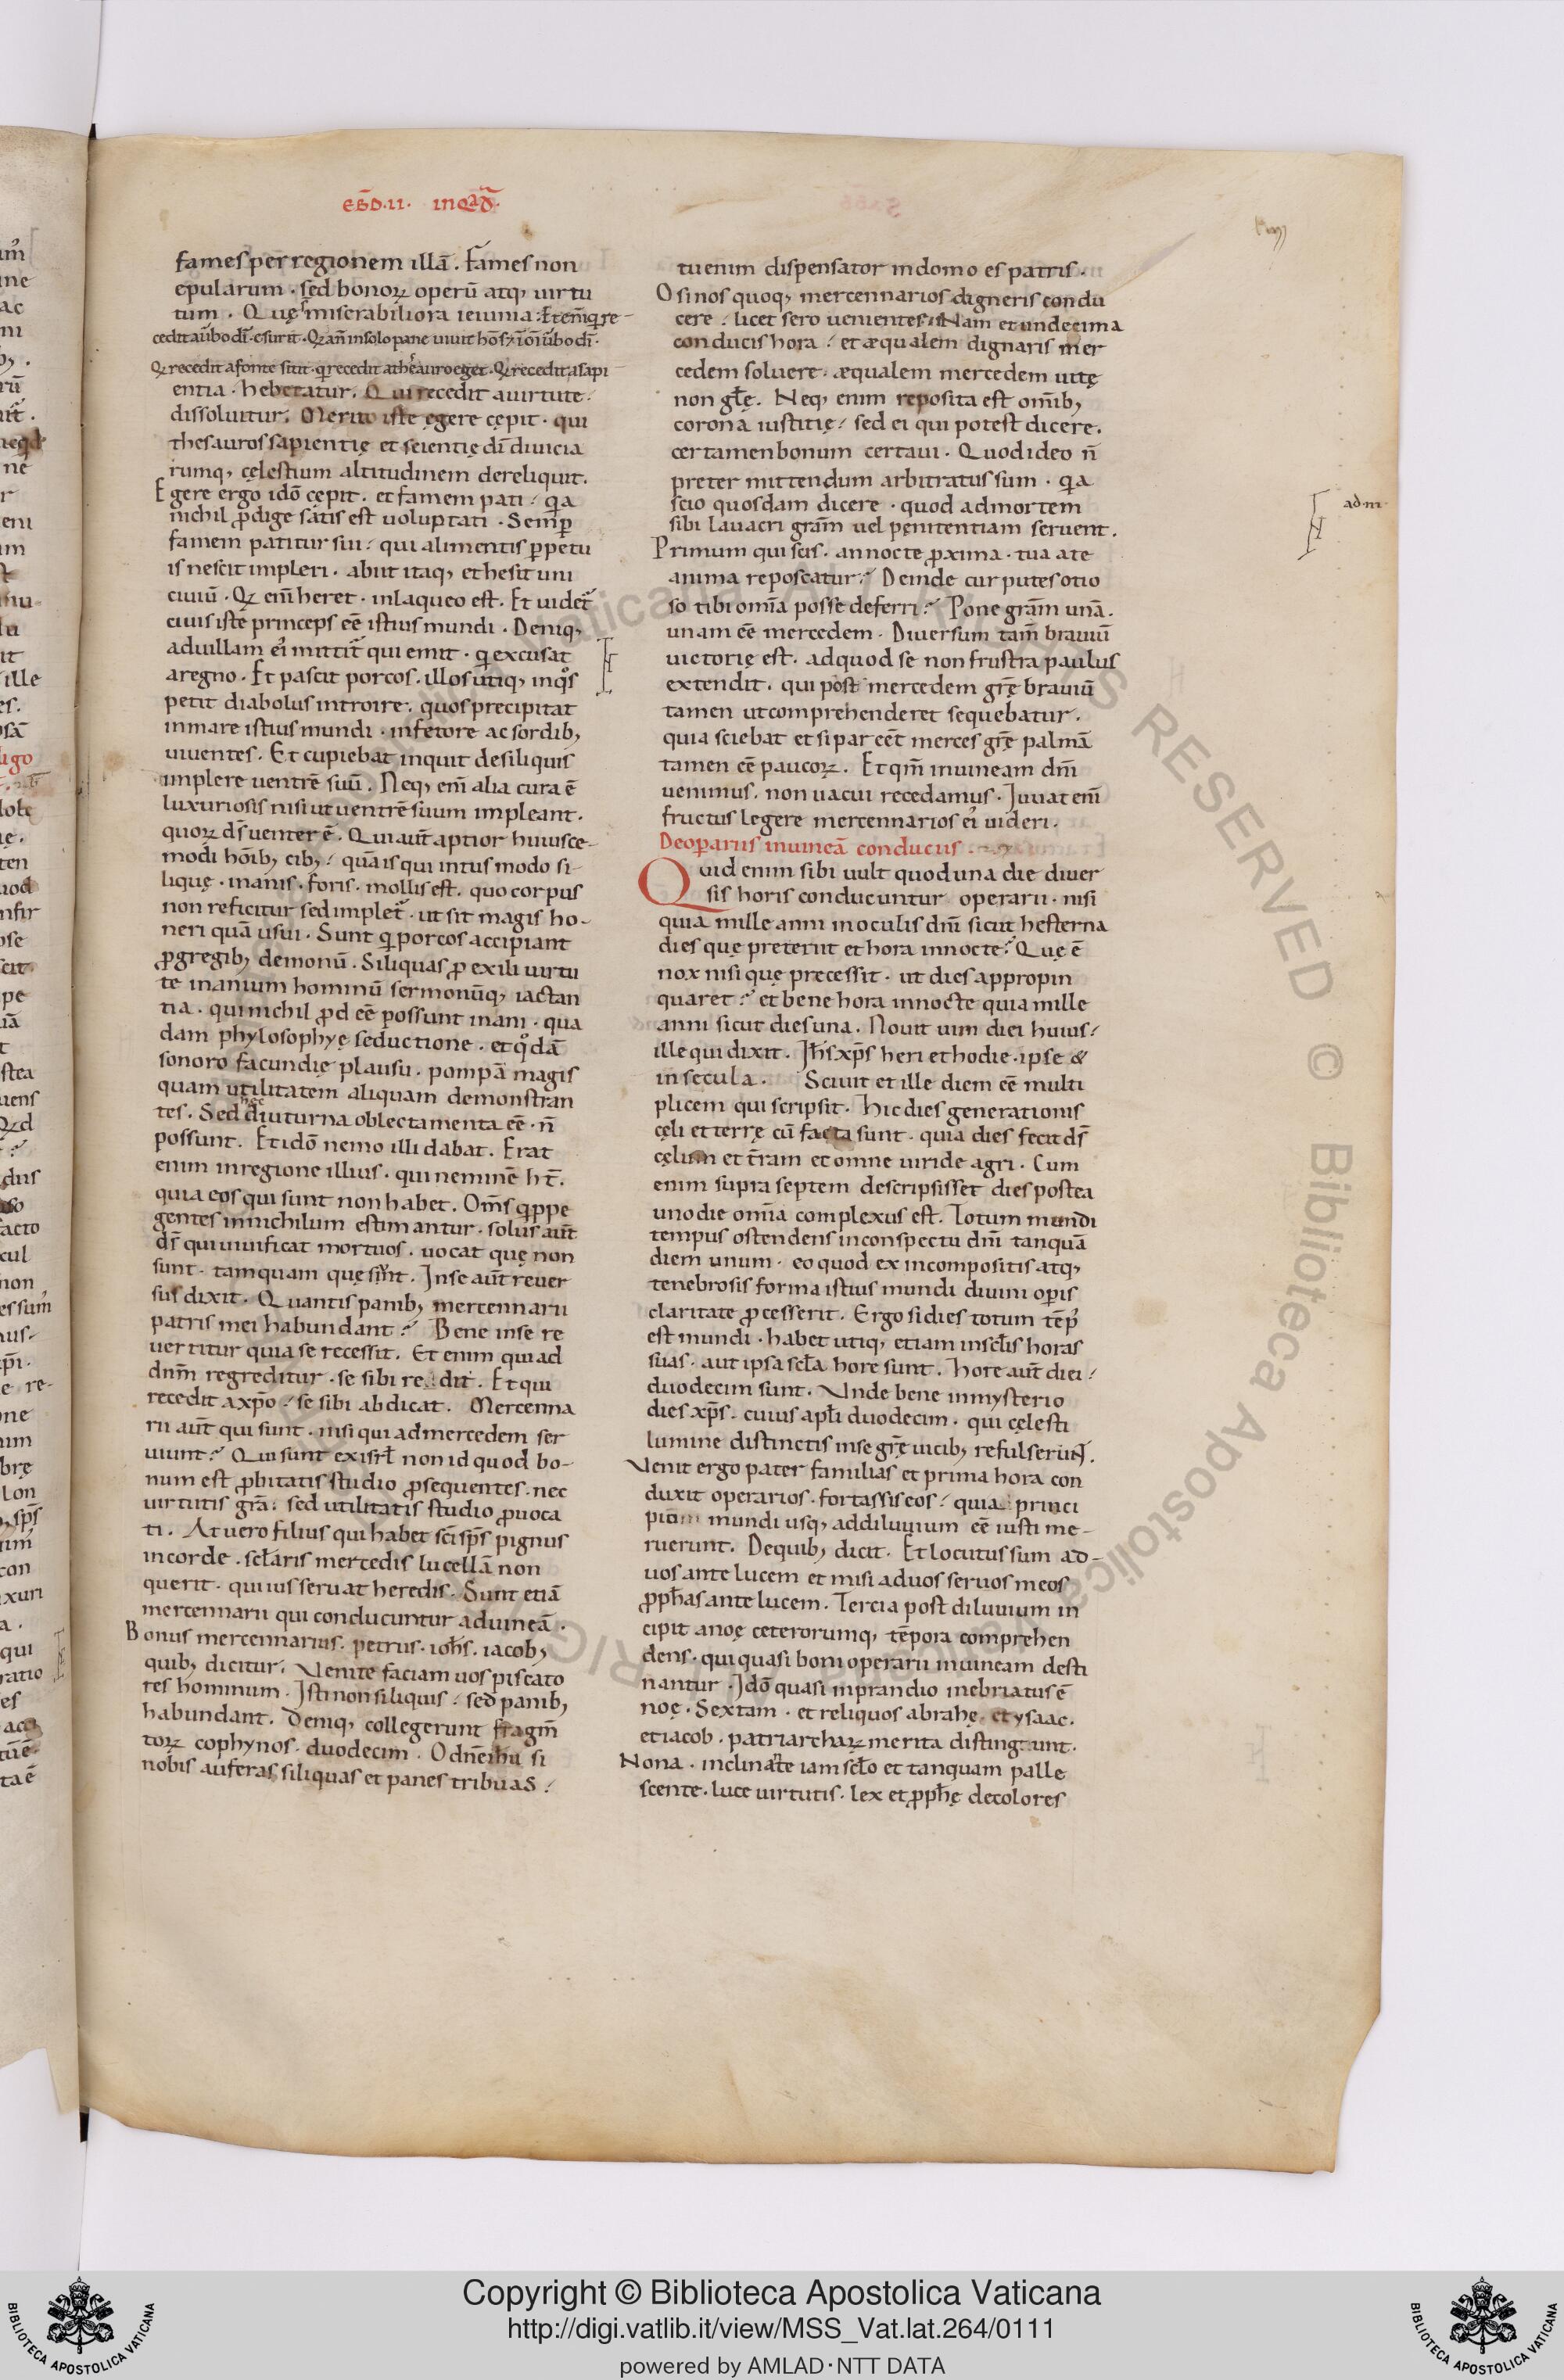 EBD.II. IN Q̃AD̃.
fames per regionem illā. Fames non
epularum. sed bonoꝝ operū atq; uirtu
tum. Quę miserabiliora ieiunia? Etem̄ q̇ re-
cedit a ũbo dī. esurit. Qꝛ añ in solo pane uiuit hōs. s; ī oī ũbo dī.
Qꝛ recedit a fonte sitit. q̇ recedit a thesauro eget. Qꝛ recedit a sapi
entia. hebetatur. Qui recedit a uirtute.
dissoluitur. Merito iste egere cępit. qui
thesauros sapientię et scientię dī diuicia
rumq; cęlestium altitudinem dereliquit.
Egere ergo idō cępit. et famem pati. q̇a
nichil ꝓdige satis est uoluptati. Semꝑ
famem patitur sui. qui alimentis ꝑpetu
is nescit impleri. abiit itaq; et hesit uni
ciuiū. Qꝛ em̄ heret. in laqueo est. Et uidet̃
ciuis iste princeps eē istius mundi. Deniq;
ad uillam ei᷒ mittit̃ qui emit. q̇ excusat
a regno. Et pascit porcos. illos utiq; in q̊s
petit diabolus introire. quos precipitat
in mare istius mundi. in fetore ac sordib;
uiuentes. Et cupiebat inquit de siliquis
implere uentrē suū. Neq; em̄ alia cura ē
luxuriosis nisi ut uentrē suum impleant.
quoꝝ dš uenter ē. Qui aut̄ aptior huiusce-
modi hōib; cib;. quā is qui intus modo si-
lique. inanis. foris. mollis est. quo corpus
non reficitur sed implet̃. ut sit magis ho-
neri quā usui. Sunt q̇ porcos accipiant
ꝓ gregib; demonū. Siliquas ꝓ exili uirtu
te inanium hominū sermonūq; iactan
tia. qui nichil ꝓd eē possunt inani. qua
dam phylosophyę seductione. et q̊dā
sonoro facundię plausu. pompā magis
quam utilitatem aliquam demonstran
tes. Sed nec diuturna oblectamenta eē. ñ
possunt. Et idō nemo illi dabat. Erat
enim in regione illius. qui neminē ht̄.
quia eos qui sunt non habet. Om̄s q̇ppe
gentes in nichilum estimantur. solus aut̄
dš qui uiuificat mortuos. uocat quę non
sunt. tamquam quę sint. In se aut̄ reuer
sus dixit. Quantis panib; mercennarii
patris mei habundant? Bene in se re
uertitur quia se recessit. Et enim qui ad
dnm̄ regreditur. se sibi reddit. Et qui
recedit a xp̄o. se sibi abdicat. Mercenna
rii aut̄ qui sunt. nisi qui ad mercedem ser
uiunt? Qui sunt ex isrł non id quod bo-
num est ꝓbitatis studio ꝓsequentes. nec
uirtutis gr̄a. sed utilitatis studio ꝓuoca
ti. At uero filius qui habet sc̄i sp̄s pignus
in corde. scłaris mercedis lucellā non
querit. qui ius seruat heredis. Sunt etiā
mercennarii qui conducuntur ad uineā.
Bonus mercennarius. petrus. ioħs. iacob;
quib; dicitur. Venite faciam uos piscato
res hominum. Isti non siliquis. sed panib;
habundant. Deniq; collegerunt fragm̄
toꝝ cophynos. duodecim. O dnē ihu si
nobis auferas siliquas et panes tribuas.
tu enim dispensator in domo es patris.
O si nos quoq; mercennarios digneris condu
cere. licet sero uenientes. Nam et undecima
conducis hora. et æqualem dignaris mer
cedem soluere. æqualem mercedem uitę
non głę. Neq; enim reposita est omīb;
corona iustitię. sed ei qui potest dicere.
certamen bonum certaui. Quod ideo ñ
preter mittendum arbitratus sum. q̇a
scio quosdam dicere. quod ad mortem
ad.m.
sibi lauacri gr̄am uel penitentiam seruent.
Primum qui scis. an nocte ꝓxima. tua a te
anima reposcatur? Deinde cur putes otio
so tibi omīa posse deferri? Pone gr̄am unā.
unam eē mercedem. Diuersum tam̄ brauiū
uictorię est. ad quod se non frustra paulus
extendit. qui post mercedem gr̄ę brauiū
tamen ut comprehenderet sequebatur.
quia sciebat et si par eēt merces gr̄ę palmā
tamen eē paucoꝝ. Et qm̄ in uineam dn̄i
uenimus. non uacui recedamus. Iuuat em̄
fructus legere mercennarios ei᷒ uideri.
De oꝑariis in uineā conductis.
Quid enim sibi uult quod una die diuer
sis horis conducuntur operarii. nisi
quia mille anni in oculis dn̄i sicut hesterna
dies quę preteriit et hora in nocte? Quę ē
nox nisi quę precessit. ut dies appropin
quaret? et bene hora in nocte quia mille
anni sicut dies una. Nouit uim diei huius.
ille qui dixit. Iħs xp̄s heri et hodie. ipse &
in secula. Sciuit et ille diem eē multi
plicem qui scripsit. Hic dies generationis
cęli et terrę cū facta sunt. quia dies fecit dš
cęlum et t̄ram et omne uiride agri. Cum
enim supra septem descripsisset dies postea
uno die omīa complexus est. Totum mundi
tempus ostendens in conspectu dn̄i tanquā
diem unum. eo quod ex incompositis atq;
tenebrosis forma istius mundi diuini opis
claritate ꝓcesserit. Ergo si dies totum tēp᷒
est mundi. habet utiq; etiam in scłis horas
suas. aut ipsa scła hore sunt. Hore aut̄ diei.
duodecim sunt. Vnde bene in mysterio
dies xp̄s. cuius apłi duodecim. qui cęlesti
lumine distinctis in se gr̄ę uicib; refulserunt.
Venit ergo pater familias et prima hora con
duxit operarios. fortassis eos. quia princi
pium mundi usq; ad diluuium eē iusti me-
ruerunt. De quib; dicit. Et locutus sum ad-
uos ante lucem et misi ad uos seruos meos
ꝓpħas ante lucem. Tercia post diluuium in
cipit a noę ceterorumq; tēpora comprehen
dens. qui quasi boni operarii in uineam desti
nantur. Idō quasi in prandio inebriatus ē
noę. Sextam. et reliquos abrahę. et ysaac.
et iacob. patriarchaꝝ merita distingunt.
Nona. inclinante iam scło et tanquam palle
scente. luce uirtutis. lex et ꝓpħę decolores
Copyright © Biblioteca Apostolica Vaticana
http://digi.vatlib.it/view/MSS_Vat.lat.264/0111
powered by AMLAD·NTT DATA